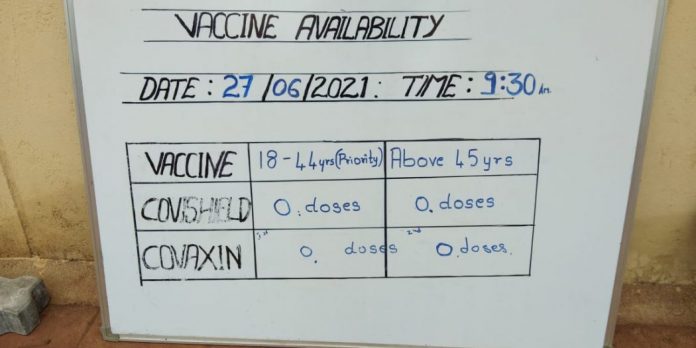 VACCINE AVAILABILITY
DATE : 27/06/2021: TIME : 9:30 Am
VACCINE 18-44yrs(Priority) Above 45yrs
COVISHIELD 0. doses 0. doses
COVAXIN 1st 0. doses 2nd 0. doses.